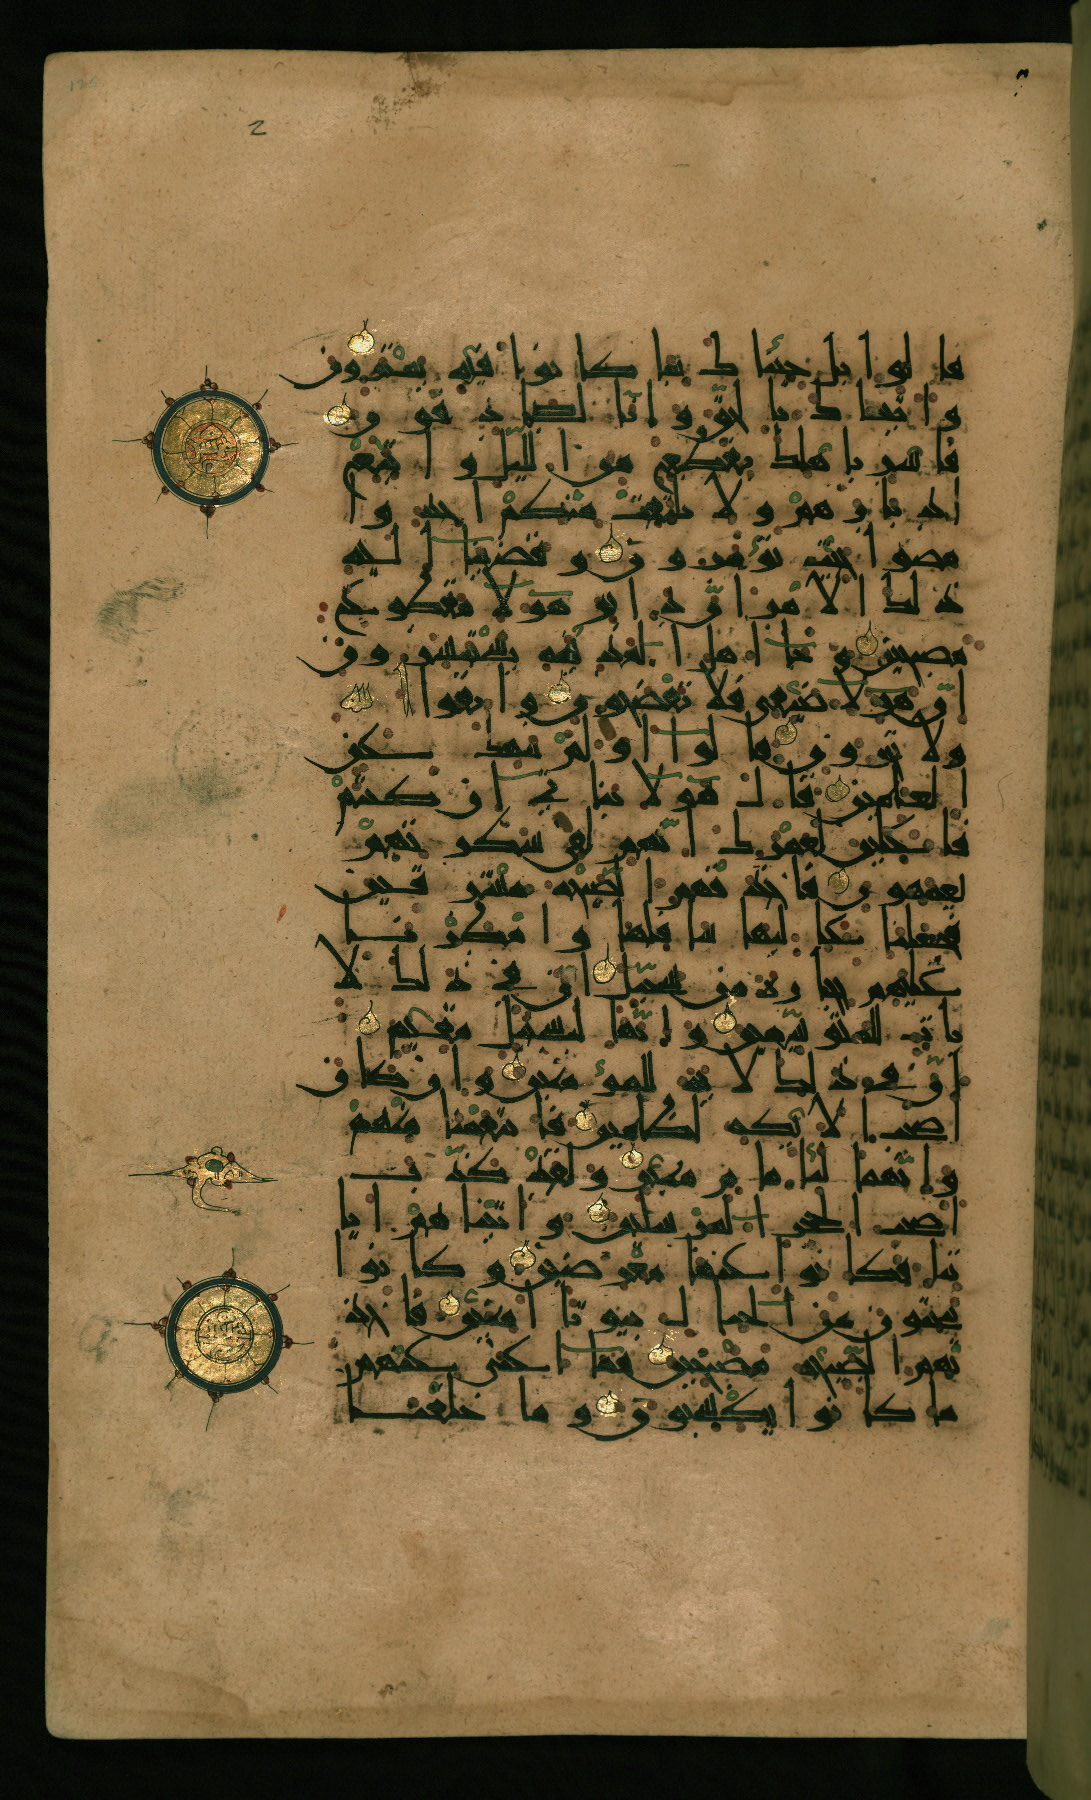 قالوا بل جئناك بما كانوا فيه يمترون
واتيناك بالحق وانا لصادقون
فاسر باهلك بقطع من اليل واتبع
ادبارهم ولا يلتفت منكم احد وا
مضوا حيث تؤمرون وقضينا اليه
ذلك الامر ان دابر هؤلاء مقطوع
مصبحين وجاء اهل المدينة يستبشرون
ان هؤلاء ضيفي فلا تفضحون واتقوا الله
ولا تخزون قالوا اولم ننهك عن
العلمين قال هؤلاء بناتي ان كنتم
فاعلين لعمرك انهم لفي سكرتهم
يعمهون فاخذتهم الصيحة مشرقين
فجعلنا عاليها سافلها وامطرنا
عليهم حجارة من سجيل ان في ذلك لا
يات للمتوسمين وانها لبسبيل مقيم
ان في ذلك لاية للمؤمنين وان كان
اصحب الايكة لظلمين فانتقمنا منهم
وانهما لبامام مبين ولقد كذب
اصحب الحجر المرسلين واتيناهم ايا
تنا فكانوا عنها معرضين وكانوا
ينحتون من الجبال بيوتا امنين فاخذ
تهم الصيحة مصبحين فما اغنى عنهم
ما كانوا يكسبون وما خلقنا